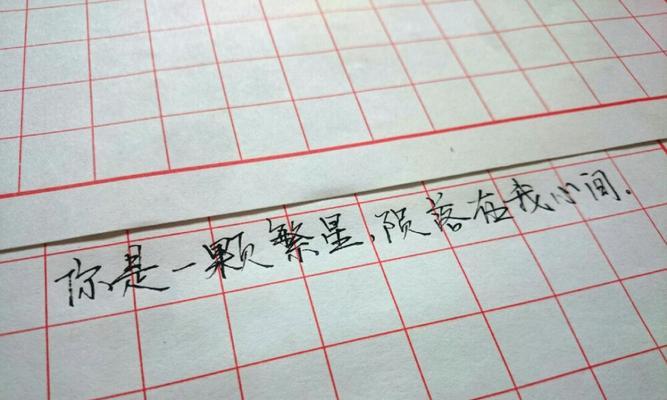 你是一颗繁星,陨落在我心间.